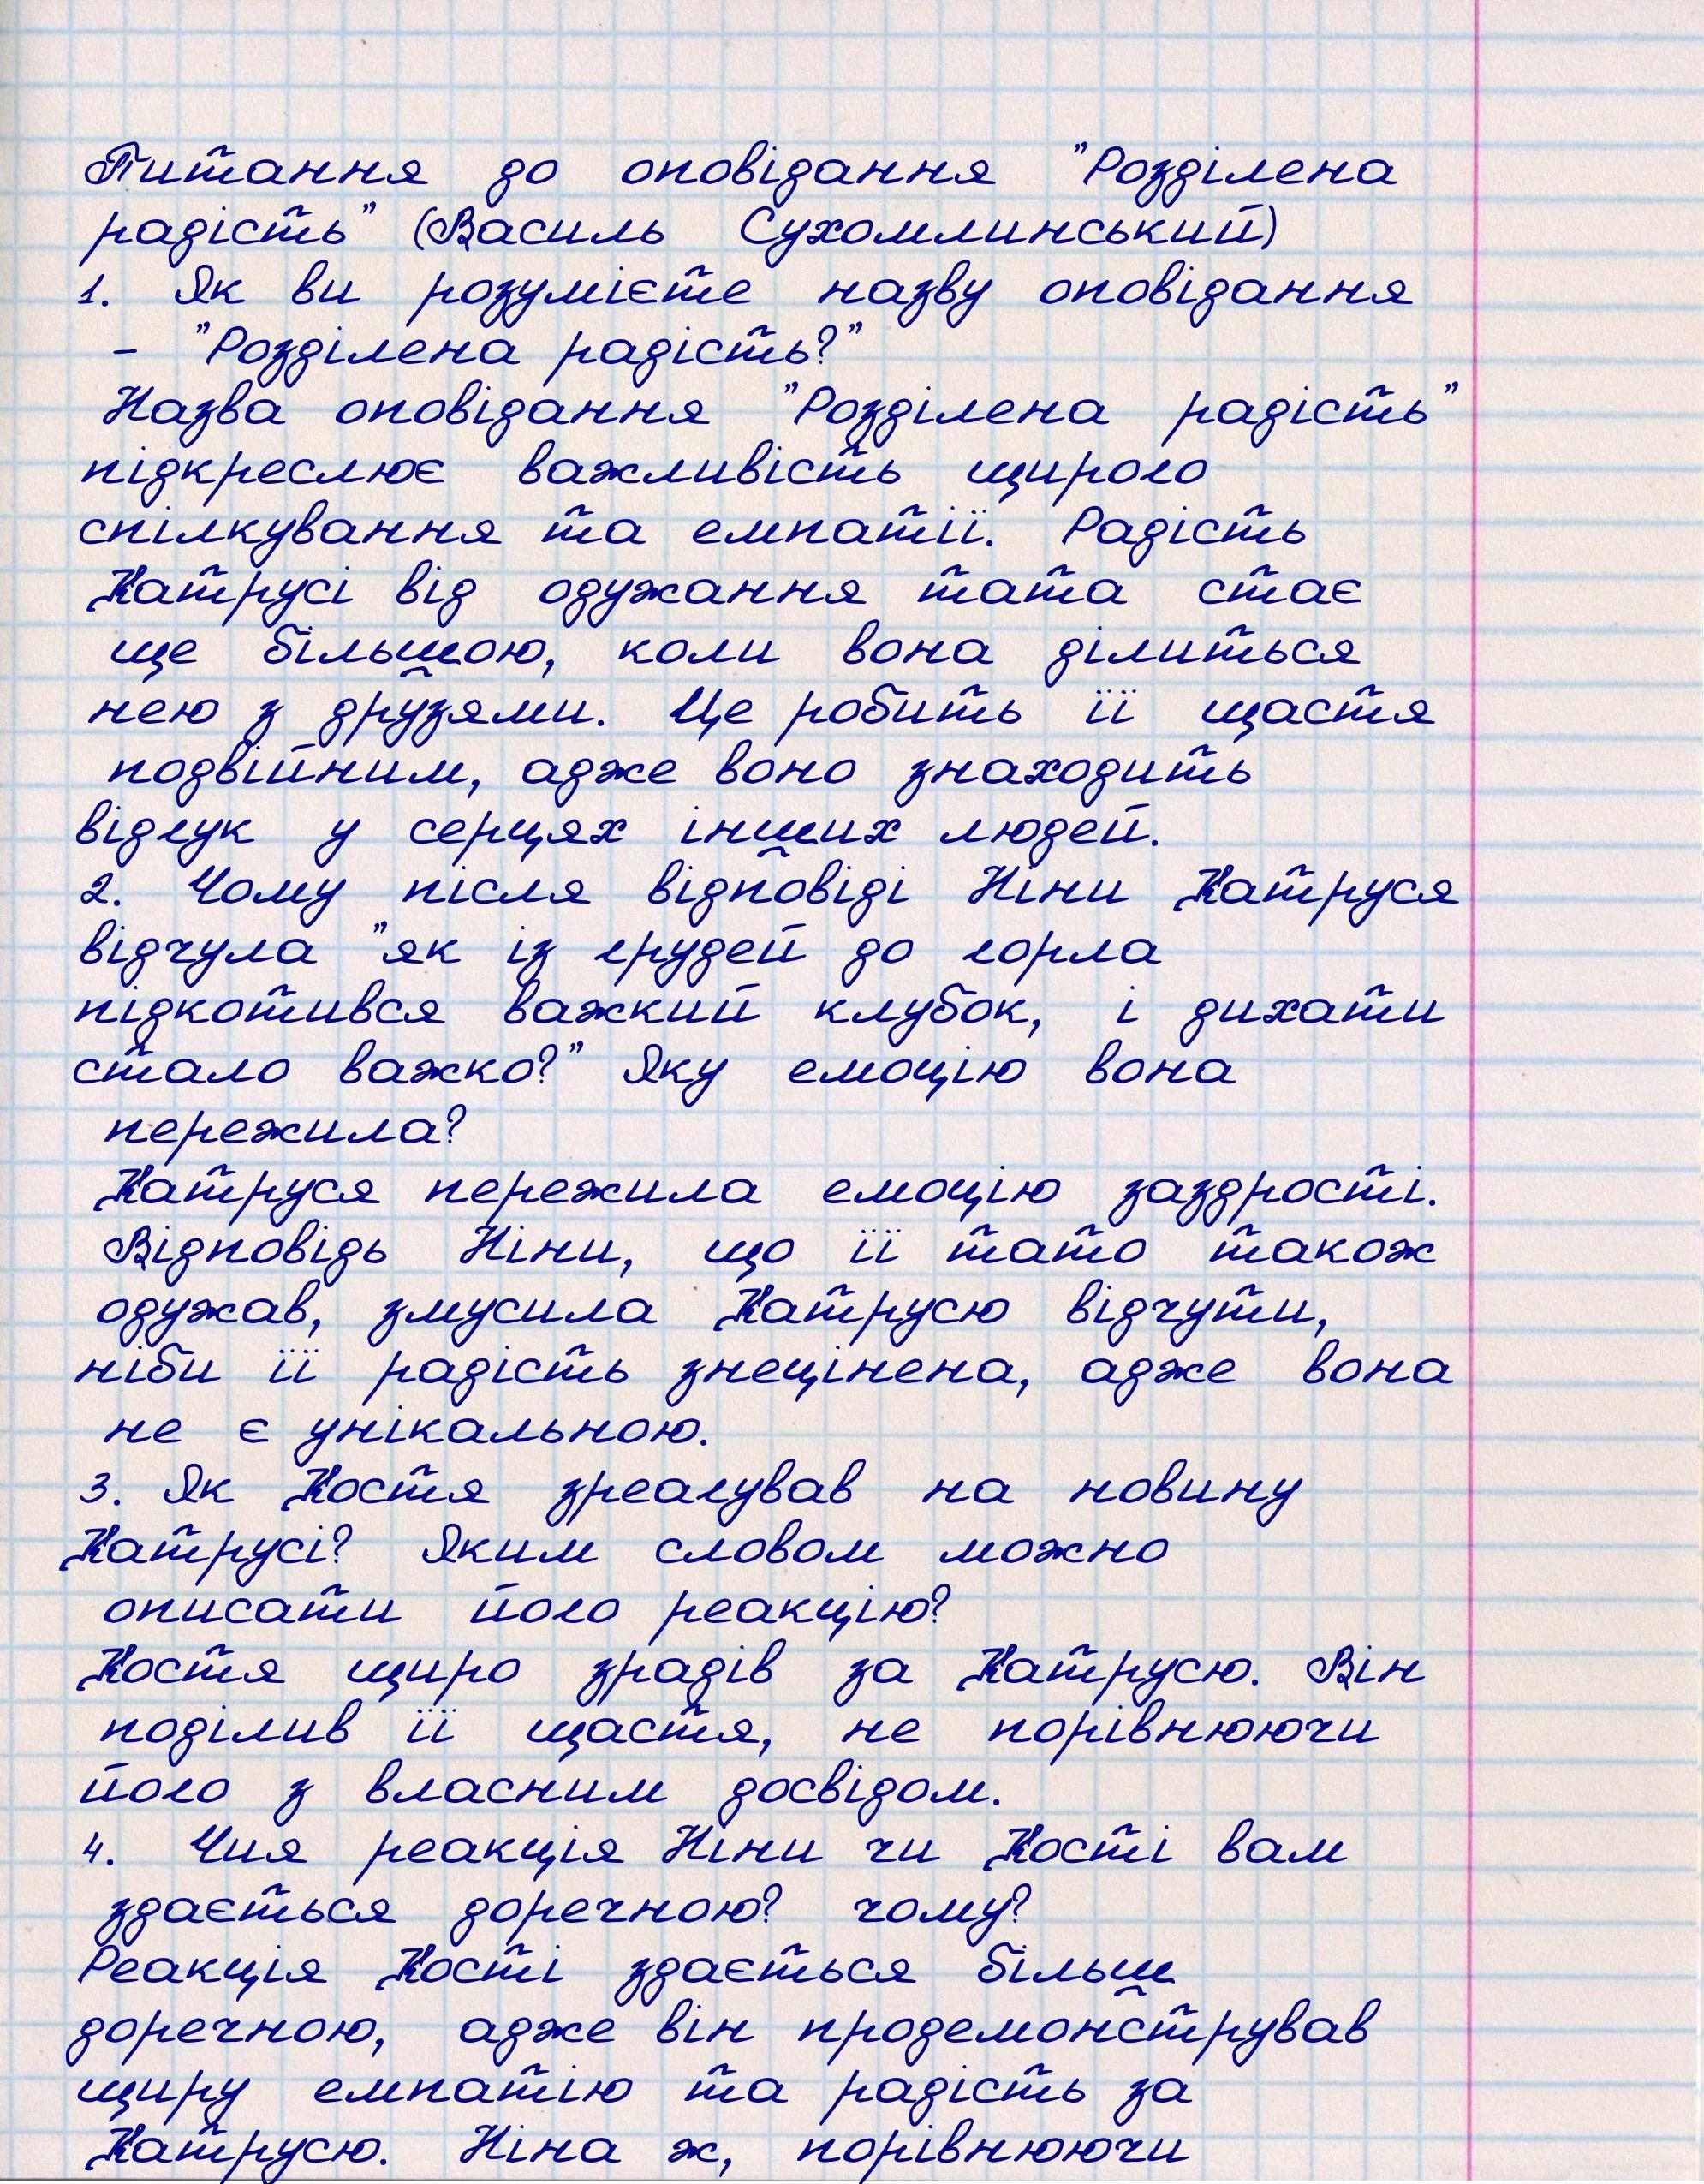 Питання до оповідання "Розділена
радість" (Василь Сухомлинський)
1. Як ви розумієте назву оповідання
- "Розділена радість?"
Назва оповідання "Розділена радість"
підкреслює важливість щирого
спілкування та емпатії. Радість
Катрусі від одужання тата стає
ще більшою, коли вона ділиться
нею з друзями. Це робить її щастя
подвійним, адже воно знаходить
відгук у серцях інших людей.
2. Чому після відповіді Ніни Катруся
відчула "як із грудей до горла
підкотився важкий клубок, і дихати
стало важко?" Яку емоцію вона
пережила?
Катруся пережила емоцію заздрості.
Відповідь Ніни, що її тато також
одужав, змусила Катрусю відчути,
ніби її радість знецінена, адже вона
не є унікальною.
3. Як Костя зреагував на новину
Катрусі? Яким словом можно
описати його реакцію?
Костя щиро зрадів за Катрусю. Він
поділив її щастя, не порівнюючи
його з власним досвідом.
4. Чия реакція Ніни чи Кості вам
здається доречною? чому?
Реакція Кості здається більш
доречною, адже він продемонстрував
щиру емпатію та радість за
Катрусю. Ніна ж, порівнюючи